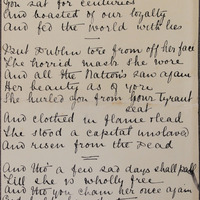 You sat for centuries
And boasted of our loyalty
And fed the world with lies
But Dublin tore from off her face
The horrid mask she wore
And all the Nations saw again
Her beauty as of yore
She hurled you from your Tyrant
seat
And clothed in flame & lead
She stood a capital unslaved
And risen from the Dead
And tho' a few sad days shall pass
Till she is wholly free
And tho' you chain her once again